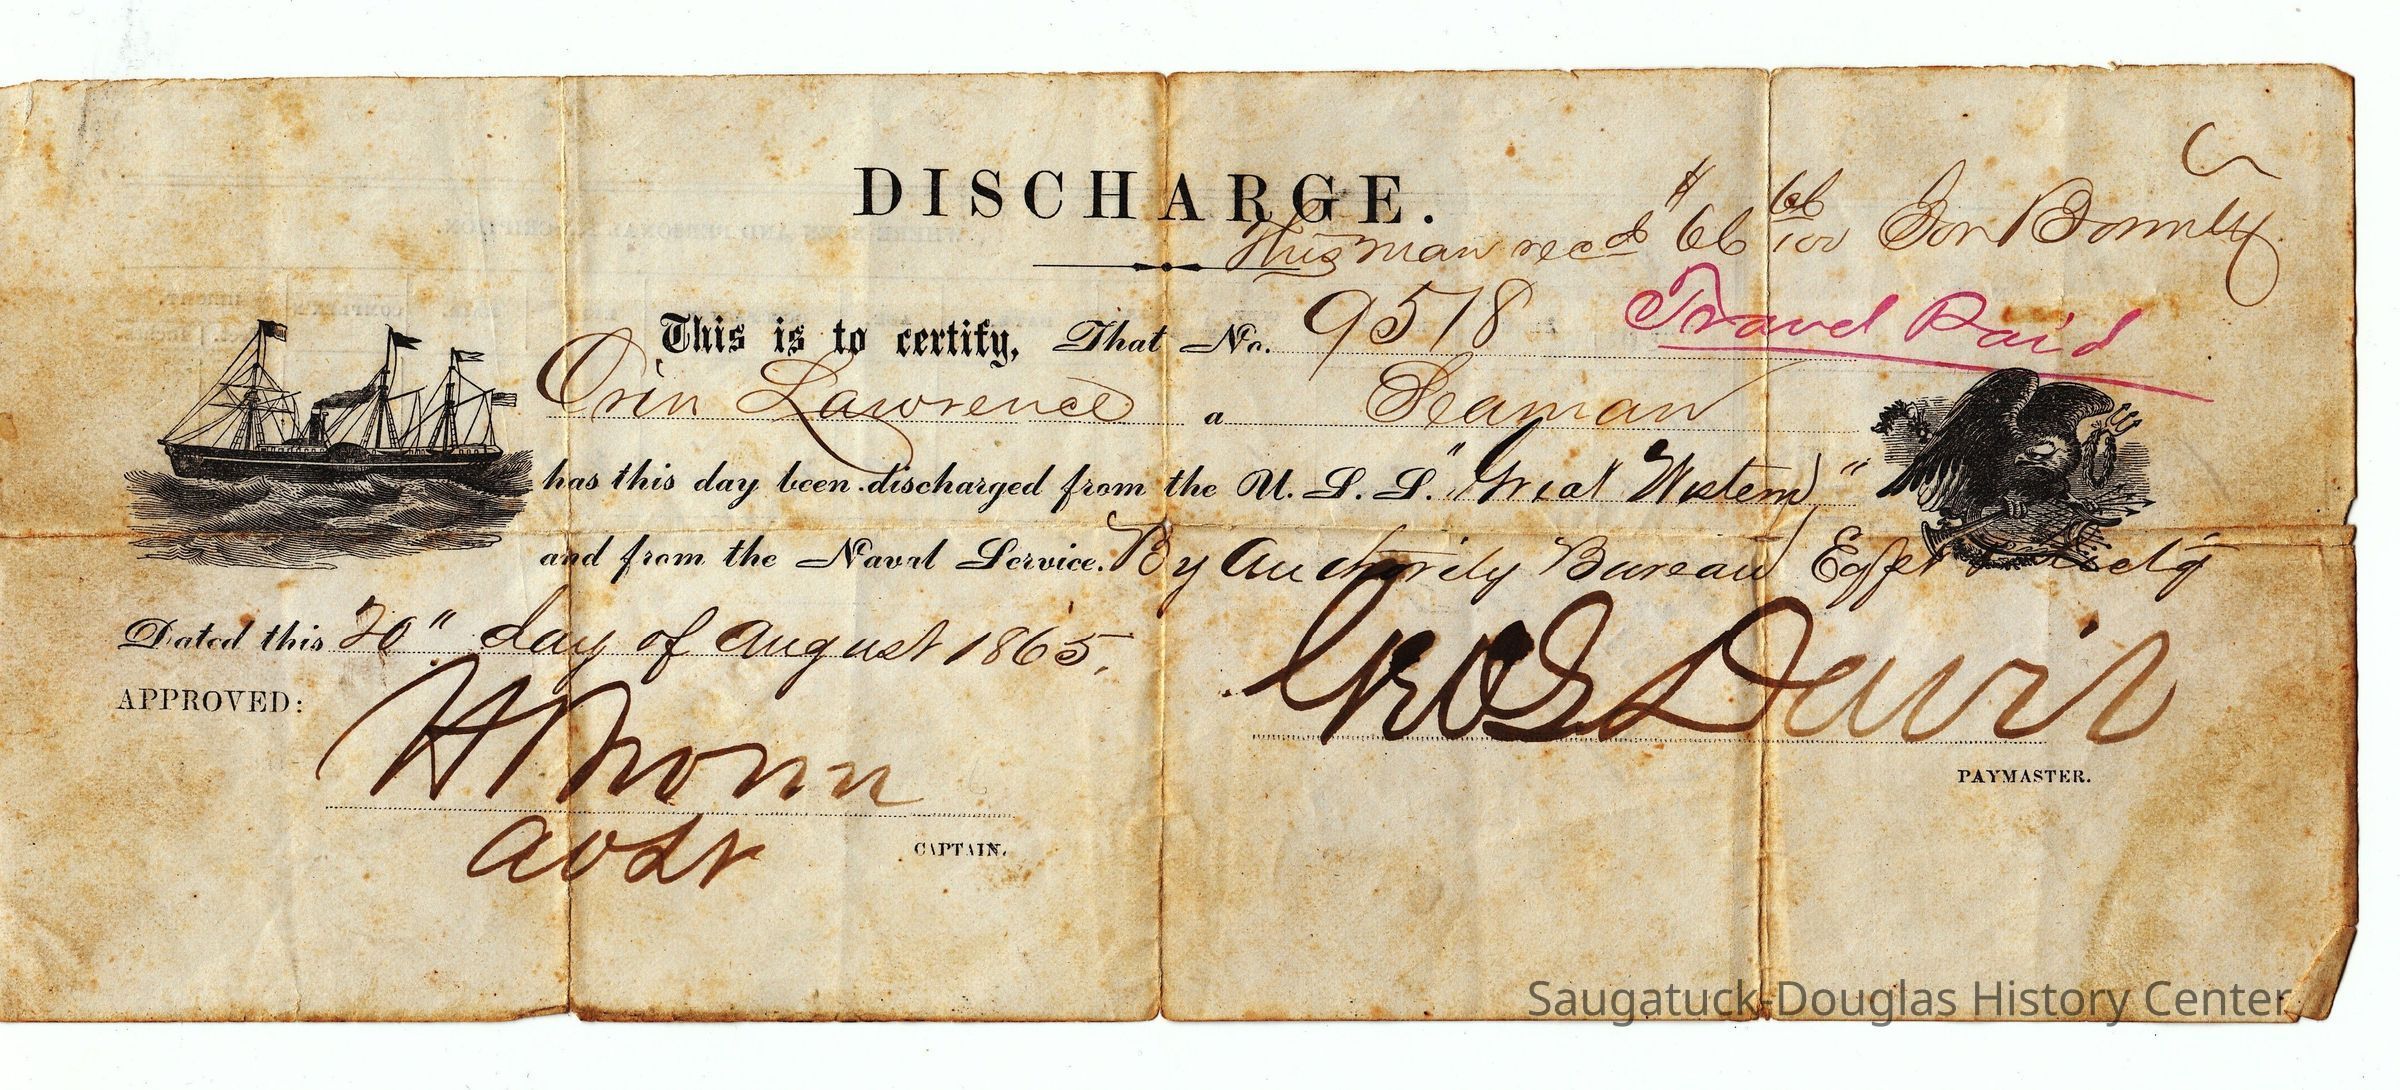 DISCHARGE.
This man rec'd $66 66/100 for Bounty
This is to certify, That No. 9578
Travel Paid
Orin Lawrence a Seaman
has this day been discharged from the U. S. S. "Great Western"
and from the Naval Service. By Authority Bureau
Dated this 20" day of August 1865.
APPROVED:
Geo S Davis
PAYMASTER.
CAPTAIN.
Saugatuck-Douglas History Center